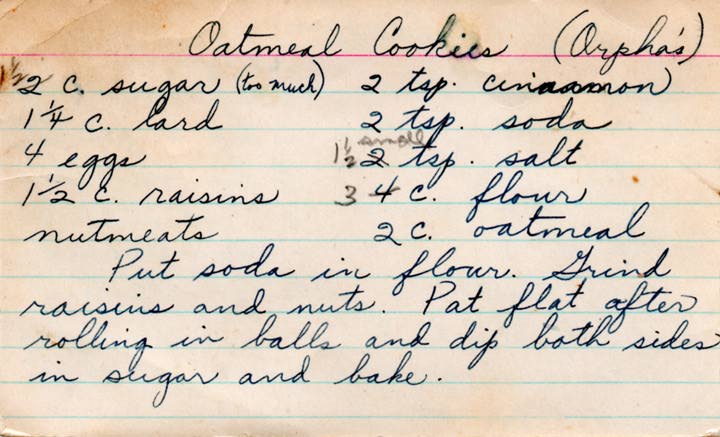 Oatmeal Cookies (Orpha's)
1½ 2 c. sugar (too much) 2 tsp. cinnamon
1¼ c. lard 2 tsp. soda
4 eggs 1½ small 2 tsp. salt
1½ c. raisins 3 4 c. flour
nutmeats 2 c. oatmeal
Put soda in flour. Grind
raisins and nuts. Pat flat after
rolling in balls and dip both sides
in sugar and bake.